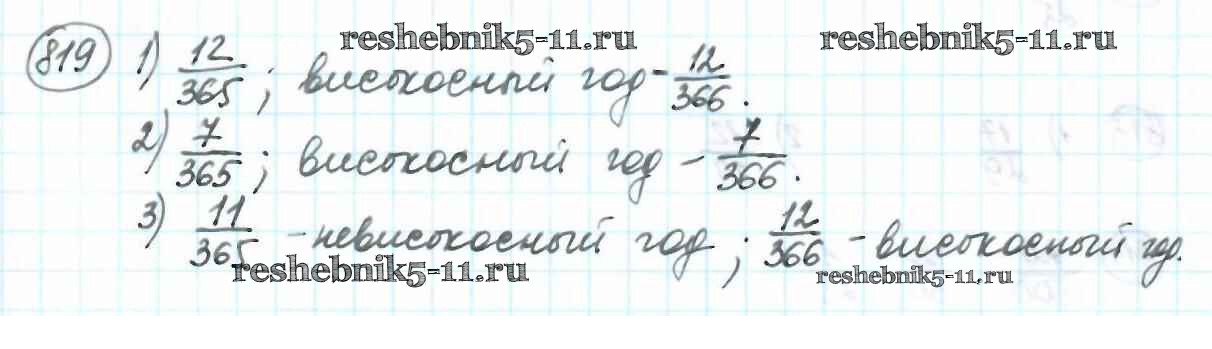 reshebnik5-11.ru reshebnik5-11.ru
819 1) 12/365; високосный год - 12/366.
2) 7/365; високосный год - 7/366.
3) 11/365 - невисокосный год; 12/366 - високосный год.
reshebnik5-11.ru reshebnik5-11.ru